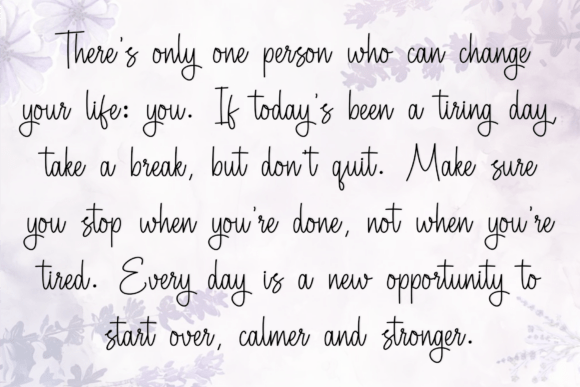 There's only one person who can change
your life: you. If today's been a tiring day,
take a break, but don't quit. Make sure
you stop when you're done, not when you're
tired. Every day is a new opportunity to
start over, calmer and stronger.